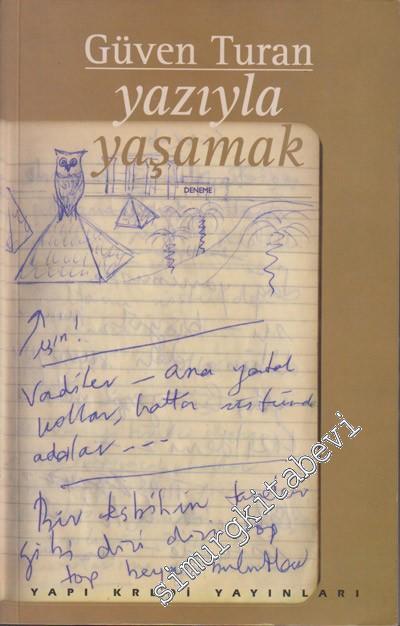 Güven Turan
yazıyla
yaşamak
DENEME
için!
Vadiler – ana yatak
kollar, hatta üstünde
adalar ---
Bir tesbihin taneleri
gibi dizi dizi, top
top beyaz bulutlar
YAPI KREDİ YAYINLARI
simurgkitabevi